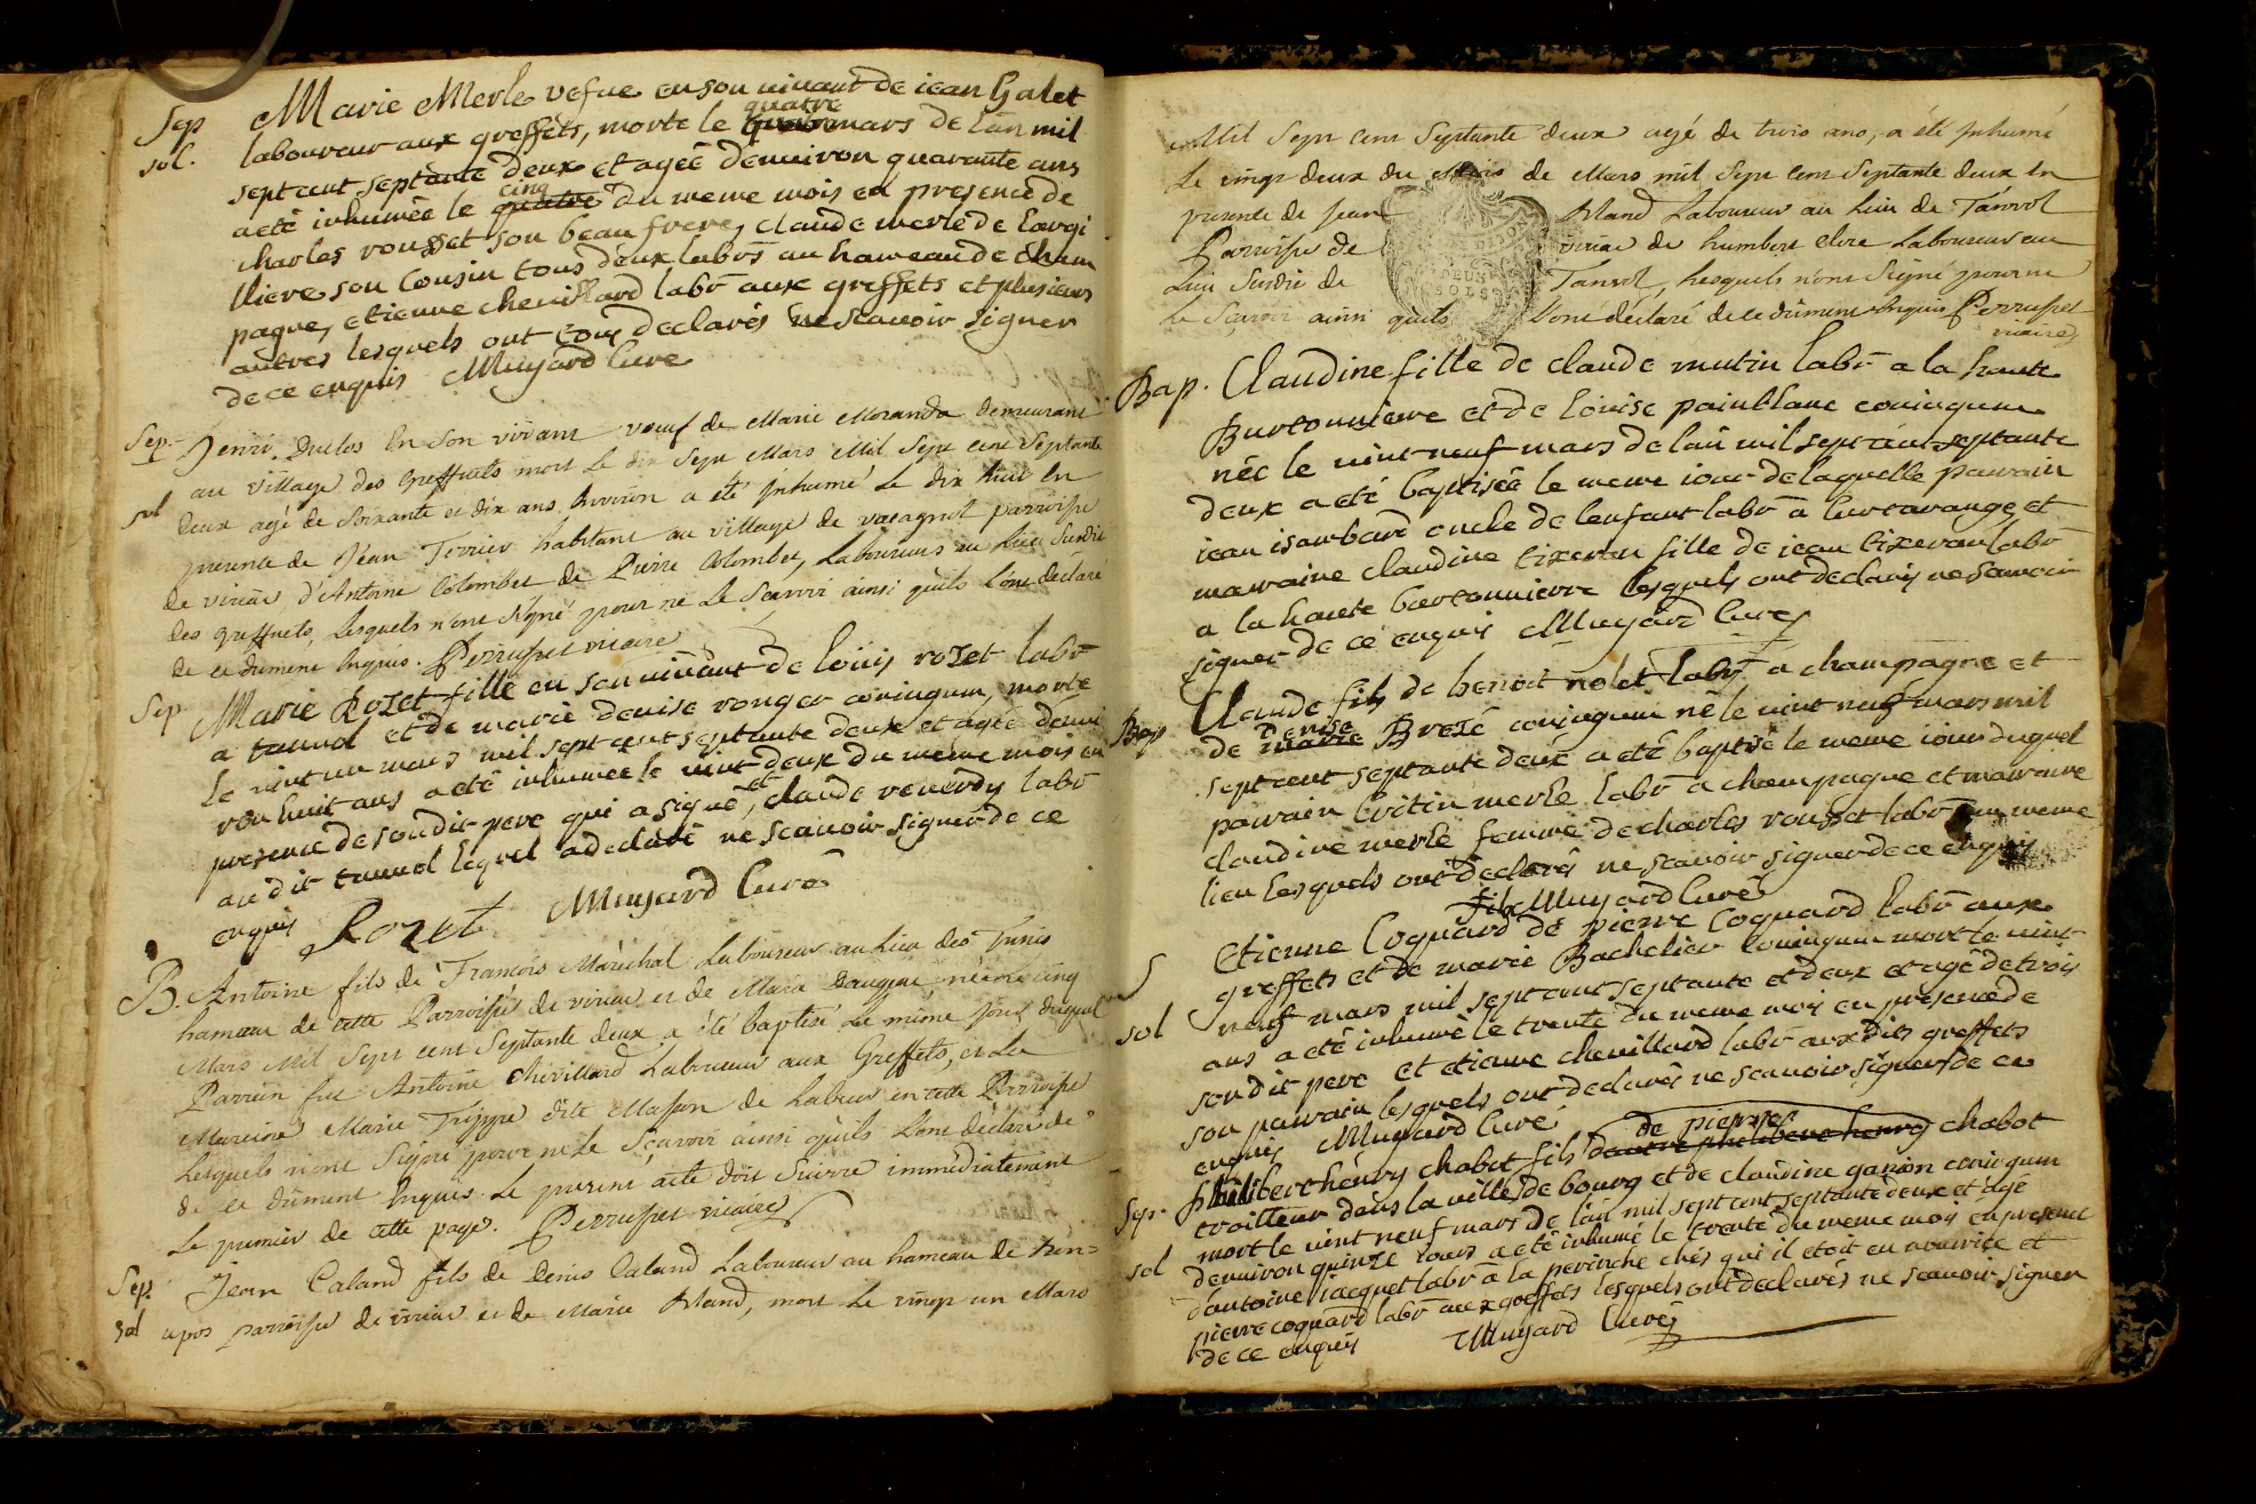 Sep Marie Merle vefue en son uiuant de iean Galet
sol. laboureur aux greffets, morte le quatre mars de lan mil
sept cent septante deux et agée denuiron quarante ans
a eté inhumée le cinq du meme mois en presence de
charles rousset son beau frere, claude merle de largi
lliere son cousin tous deux labrs au hameau de cham
pagne, etienne cheuillard labr aux greffets et plusieurs
autres lesquels ont tous declarés ne scauoir signer
de ce enquis Muyard Cure
Sep. henri Duclos En Son vivant veuf de Marie Moranda demeurant
au village des Greffuets mort Le dix Sept Mars Mil Sept cent Septante
sol deux agé de Soixante et dix ans Environ a été Inhumé Le dix huit En
presence de Jéan Terrier habitant au village de vacagnol parroisse
de viriat, d'Antoine Colombet de Pierre Colombet, Laboureurs au Lieu Susdit
des greffuets, Lesquels n'ont Signé pour ne Le Scavoir ainsi qu'ils L'ont declaré
de ce dument Enquis. Perrusset vicaire
Sep Marie Rozet fille en son uiuant de loüis rozet labr
a tannol et de marie denise ronger coniugum, morte
le uint un mars mil sept cent septante deux et agée denui
ron huit ans a eté inhumée le uint deux du meme mois en
presence de son dit pere qui a signé, et claude reuerdy labr
au dit tannol lequel a declaré ne scauoir signer de ce
enquis Rozet Muyard Curé
B. Antoine fils de François Maréchal Laboureur au Lieu des Tunis
hameau de cette Parroisse de viriat et de Marie né le cinq
Mars Mil Sept cent Septante deux a été baptisé Le même Jour duquel
Parrein fut Antoine Chevillard Laboureur aux Greffets, et La
Mareine Marie Trippe dite Masson de Labeur en cette Parroisse
Lesquels n'ont Signé pour ne Le Sçavoir ainsi qu'ils L'ont déclaré de
de ce dûment Enquis. Le present acte doit Suivre immédiatement
Le premier de cette page. Perrusset vicaire
Sep. Jean Caland fils de Denis Caland Laboureur au hameau de tren=
sol apos parroisse de viriat et de Marie Bland, mort Le vingt un Mars
Mil Sept cent Septante deux agé de trois ans, a été Inhumé
Le vingt deux du Mois de Mars mil Sept cent Septante deux En
presente de Jean Bland Laboureur au Lieu de Tannol
Parroisse de viriat de humbert clere Laboureur au
Lieu Susdit de Tannol, Lesquels n'ont Signé pour ne
le Scavoir ainsi qu'ils L'ont déclaré de ce dûment Enquis Perrusset
vicaire
DEUX
SOLS
Bap. Claudine fille de claude mutin labr a la haute
Burtonniere et de loüise painblanc coniugum
née le uint neuf mars de lan mil sept cent septante
deux a eté baptisée le meme iour de laquelle parrain
iean isambard oncle de lenfant labr a lurtarange, et
marraine claudine tixeran fille de iean tixeran labr
a la haute bourtonnierre lesquels ont declarés ne scauoir
signer de ce enquis Muyard Curé
Bap Claude fils de benoit nolet labr a champagne et
de Denise Brezé coniugum né le uint neuf mars mil
sept cent septante deux a eté baptisé le meme iour duquel
parrain Critin merle labr a champagne et marraine
claudine merle femme de charles rousset labr au meme
lieu lesquels ont declarés ne scauoir signer de ce enquis
Muyard Curé
S Etienne Coquard fils de pierre Coquard labr aux
greffets et de marie Bachelier coniugum mort le uint
sol neuf mars mil sept cent septante et deux et agé de trois
ans a eté inhumé le trente du meme mois en presence de
son dit pere et etienne cheuillard labr aux dits greffets
son parrain lesquels ont declarés ne scauoir signer de ce
enquis Muyard Curé
Sep. Philibert henry chabot fils de pierre chabot
traitteur dans la uille de bourg et de claudine ganion coniugum
mort le uint neuf mars de lan mil sept cent septante deux et agé
sol denuiron quinze iours a eté inhumé le trente du meme mois en presence
dantoine iacquet labr a la peruinche chés qui il etoit en nourrice et
pierre coquard labr aux greffets lesquels ont declarés ne scauoir signer
de ce enquis Muyard Curé